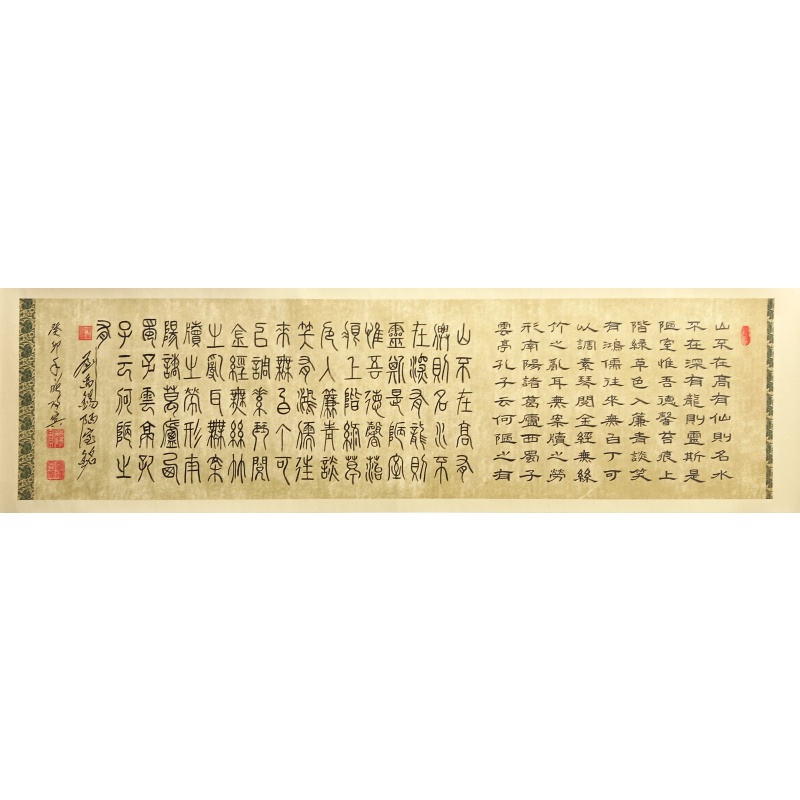 山不在高有仙則名水
不在深有龍則靈斯是
陋室惟吾德馨苔痕上
階綠草色入簾青談笑
有鴻儒往來無白丁可
以調素琴閱金經無絲
竹之亂耳無案牘之勞
形南陽諸葛廬西蜀子
雲亭孔子云何陋之有
山不在高有
仙則名水不
在深有龍則
靈斯是陋室
惟吾德馨苔
痕上階綠草
色入簾青談
笑有鴻儒往
來無白丁可
以調素琴閱
金經無絲竹
之亂耳無案
牘之勞形南
陽諸葛廬西
蜀子雲亭孔
子云何陋之
有
劉禹錫陋室銘
癸卯年